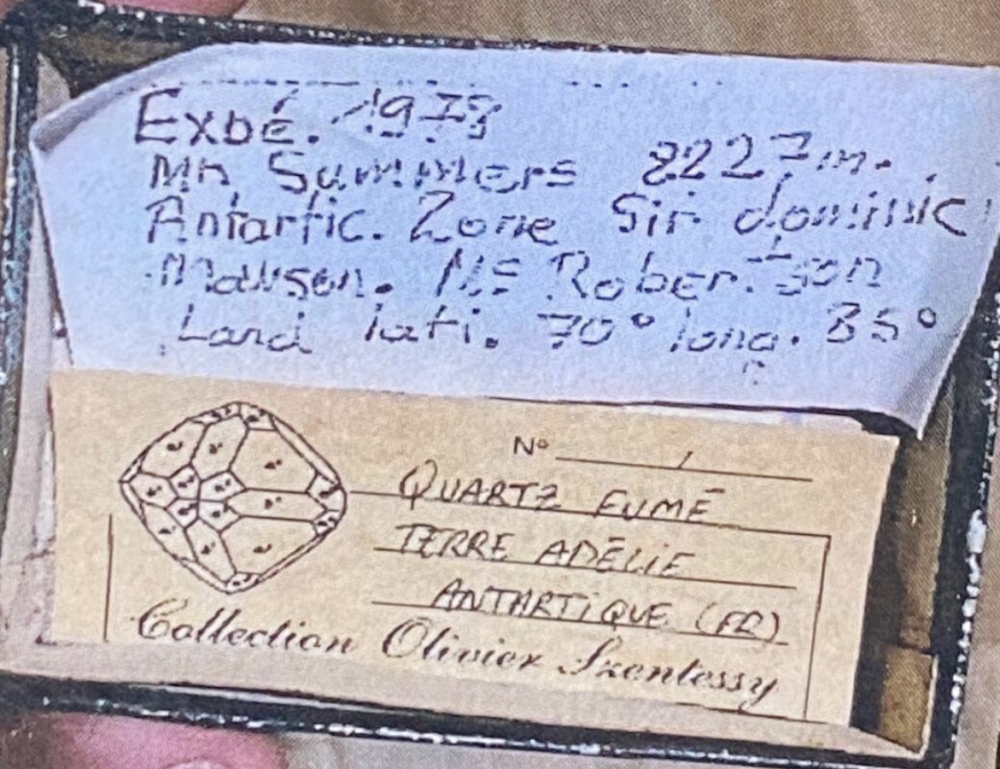 Expé. 1978
Mn Summers 2227m.
Antartic. Zone Sir dominic
Mawson. Mc Robertson
Land lati. 70° long. 85°
N°
QUARTZ FUMÉ
TERRE ADÉLIE
ANTARTIQUE (FR)
Collection Olivier Szentessy